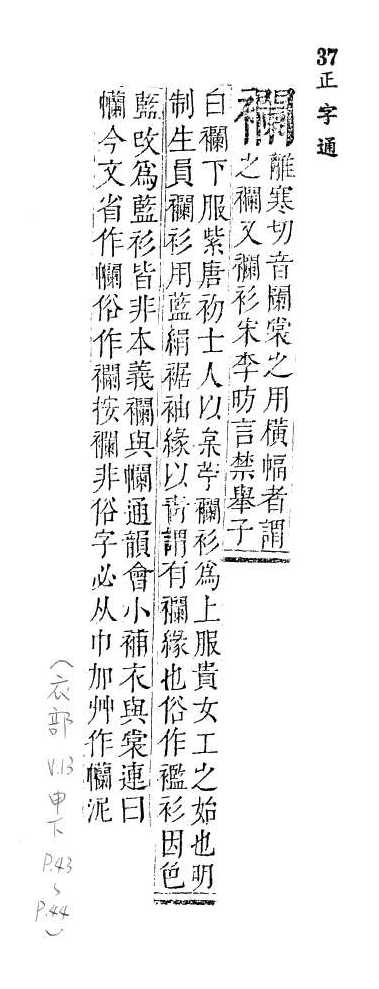 37 正字通
襴
離寒切音闌裳之用橫幅者謂
之襴又襴衫宋李昉言禁舉子
白襴下服紫唐初士人以枲苧襴衫爲上服貴女工之始也明
制生員襴衫用藍絹裾袖緣以青謂有襴緣也俗作襤衫因色
藍改爲藍衫皆非本義襴與幱通韻會小補衣與裳連曰
幱今文省作幱俗作襴按襴非俗字必从巾加艸作幱泥
(衣部 V.13 申下 P.43~P.44)